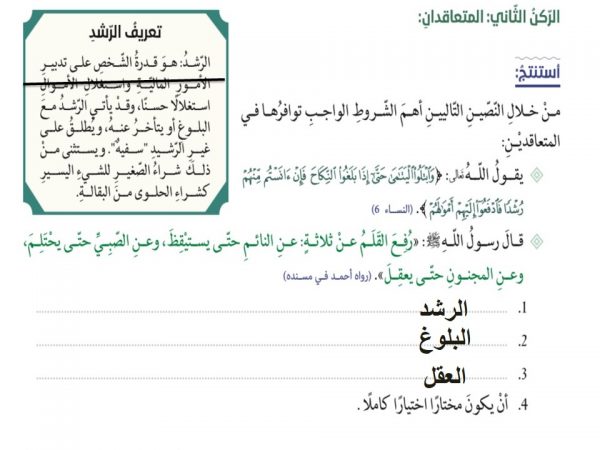 الرّكنُ الثّاني: المتعاقدانِ:
أستنتجُ:
منْ خلالِ النّصّينِ التّاليينِ أهمَّ الشّروطِ الواجبِ توافرُها في
المتعاقديْنِ:
يقولُ اللّهُ تعالى: ﴿وَابْتَلُوا الْيَتَامَىٰ حَتَّىٰ إِذَا بَلَغُوا النِّكَاحَ فَإِنْ ءَانَسْتُم مِّنْهُمْ
رُشْدًا فَادْفَعُوا إِلَيْهِمْ أَمْوَالَهُمْ﴾. (النساء 6)
تعريفُ الرّشدِ
الرّشدُ: هوَ قدرةُ الشّخصِ على تدبيرِ
الأمورِ الماليّةِ واستغلالِ الأموالِ
استغلالًا حسنًا، وقدْ يأتي الرّشدُ معَ
البلوغِ أو يتأخّرُ عنهُ، ويُطلقُ على
غيرِ الرّشيدِ "سفيهٌ". ويستثنى منْ
ذلكَ شراءُ الصّغيرِ للشيءِ اليسيرِ
كشراءِ الحلوى منَ البقالةِ.
قالَ رسولُ اللّهِ ﷺ: «رُفِعَ القَلَمُ عنْ ثلاثةٍ: عنِ النائمِ حتّى يستيْقِظَ، وعنِ الصّبيِّ حتّى يحْتَلِمَ،
وعنِ المجنونِ حتّى يعقِلَ». (رواه أحمد في مسنده)
1. الرشد
2. البلوغ
3. العقل
4. أنْ يكونَ مختارًا اختيارًا كاملًا.